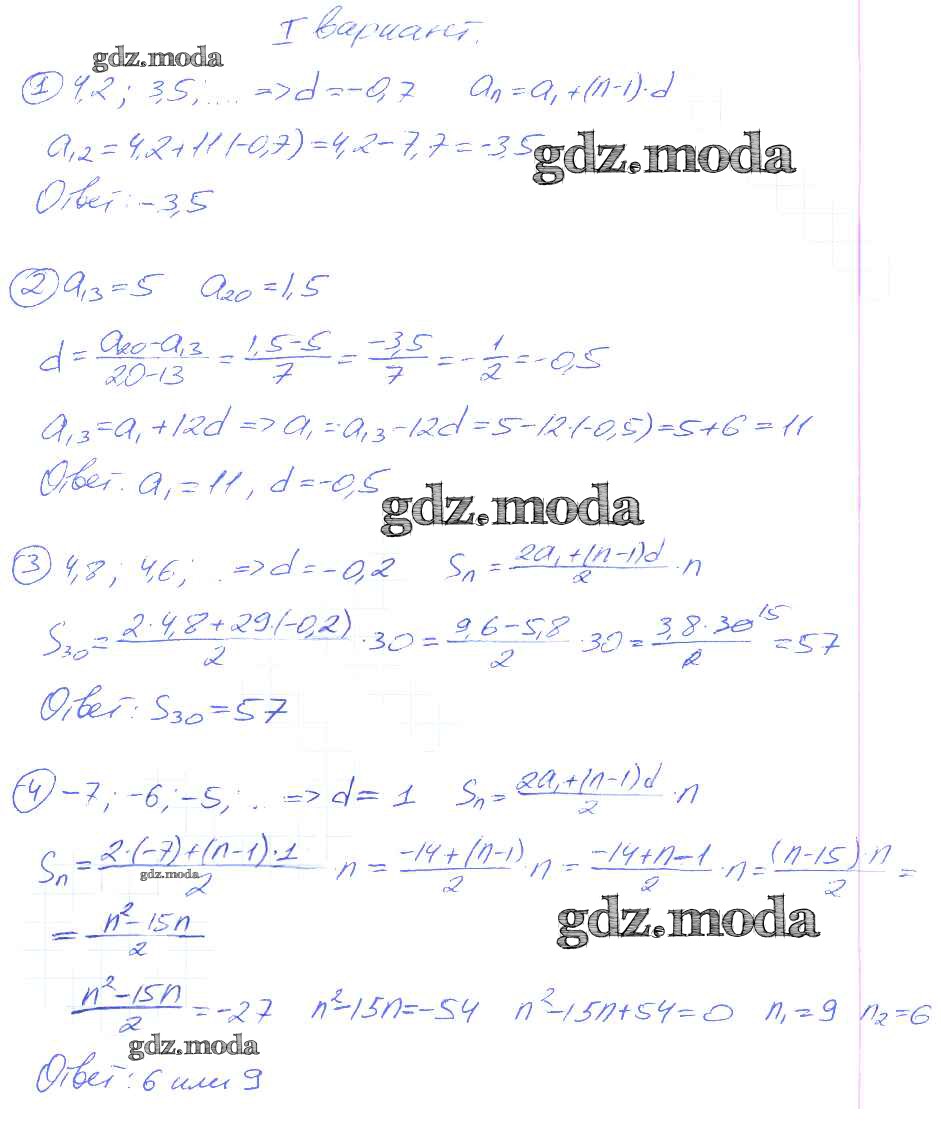 I вариант.
gdz.moda
① 4,2; 3,5; .... => d = -0,7 aₙ = a₁ + (n-1)·d
a₁₂ = 4,2 + 11(-0,7) = 4,2 - 7,7 = -3,5
gdz.moda
Ответ: -3,5
② a₁₃ = 5 a₂₀ = 1,5
d = (a₂₀ - a₁₃)/(20-13) = (1,5-5)/7 = -3,5/7 = -1/2 = -0,5
a₁₃ = a₁ + 12d => a₁ = a₁₃ - 12d = 5 - 12·(-0,5) = 5 + 6 = 11
Ответ. a₁ = 11, d = -0,5
gdz.moda
③ 4,8; 4,6; . => d = -0,2 Sₙ = (2a₁ + (n-1)d)/2 · n
S₃₀ = (2·4,8 + 29·(-0,2))/2 · 30 = (9,6 - 5,8)/2 · 30 = (3,8·30)/2 15 = 57
Ответ: S₃₀ = 57
④ -7; -6; -5; . . => d = 1 Sₙ = (2a₁ + (n-1)d)/2 · n
Sₙ = (2·(-7) + (n-1)·1)/2 · n = (-14 + (n-1))/2 · n = (-14 + n - 1)/2 · n = ((n-15)·n)/2 =
gdz.moda
= (n² - 15n)/2
gdz.moda
(n² - 15n)/2 = -27 n² - 15n = -54 n² - 15n + 54 = 0 n₁ = 9 n₂ = 6
gdz.moda
Ответ: 6 или 9